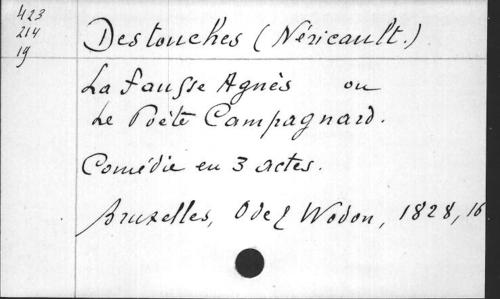 423
214
19
Destouches (Néricault.)
La Fausse Agnès ou
Le Poète Campagnard.
Comédie en 3 actes.
Bruxelles, Odel Wodon, 1828, 16